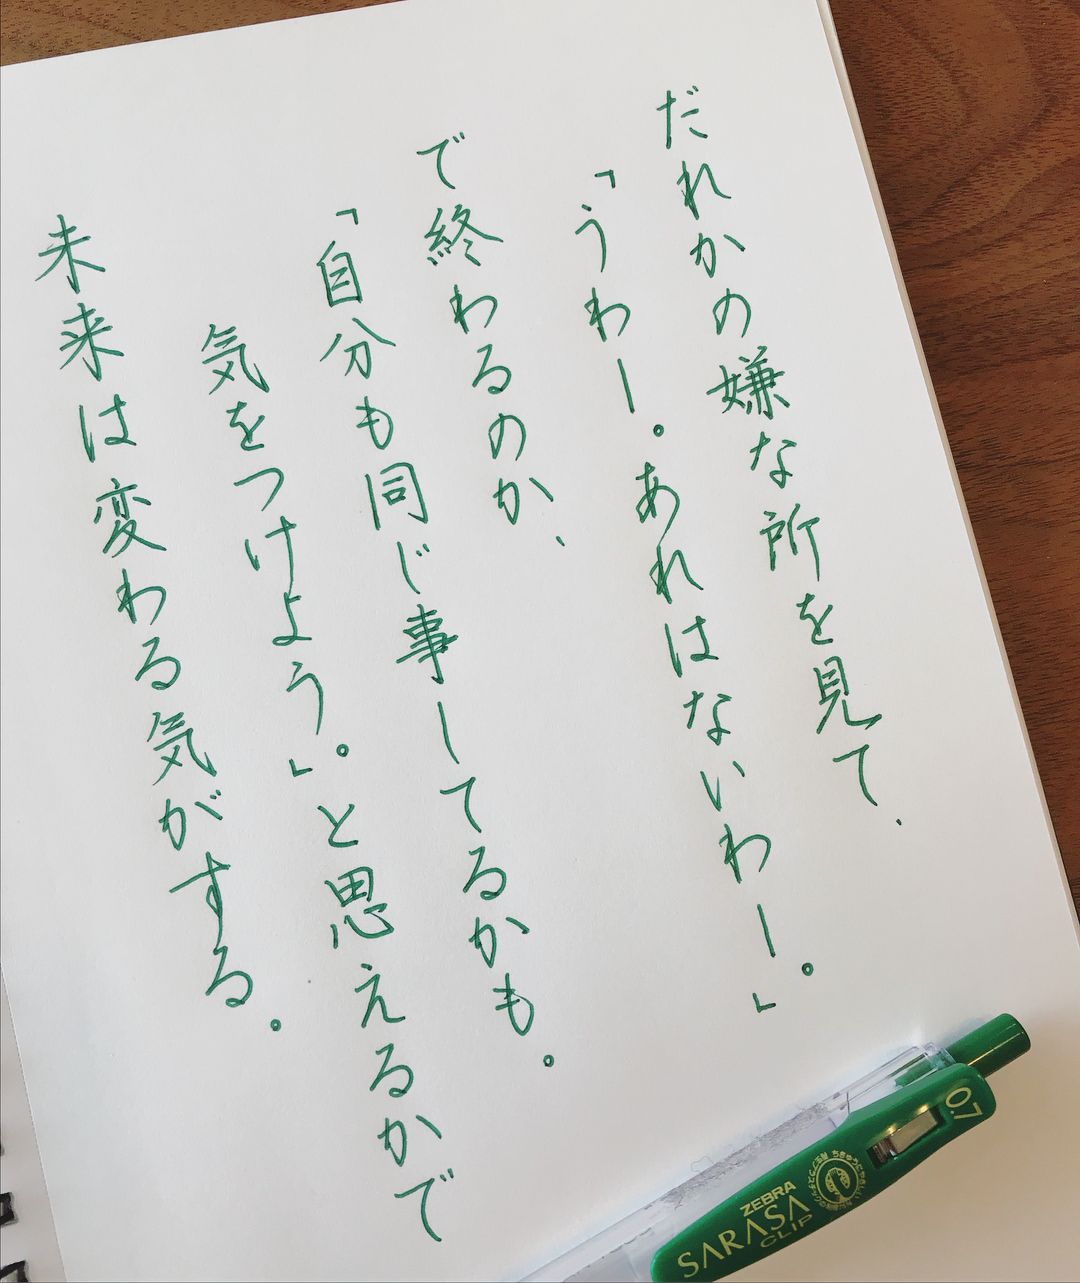 だれかの嫌な所を見て、
「うわー。あれはないわー。」
で終わるのか、
「自分も同じ事してるかも。
気をつけよう。」と思えるかで
未来は変わる気がする。
0.7
ZEBRA
SARASA
CLIP